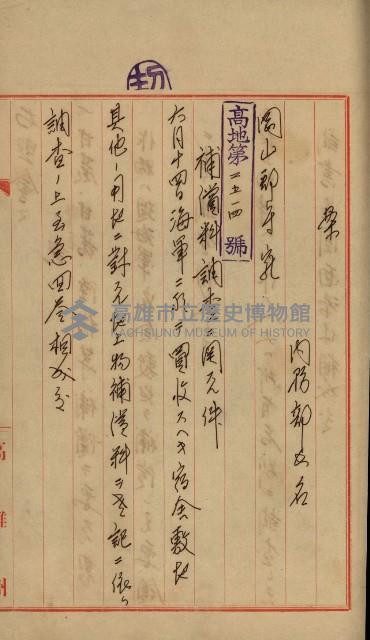 案
内務部長名
岡山郡守宛
高地第二五一四號
補償料調査ニ関スル件
六月十四日海軍ニ於テ買收スヘキ宿舍敷地
其他ノ用地ニ對スル地上物補償料ヲ左記ニ依リ
調查ノ上至急回答相成度
高雄州
高雄市立歷史博物館
KAOHSIUNG MUSEUM OF HISTORY